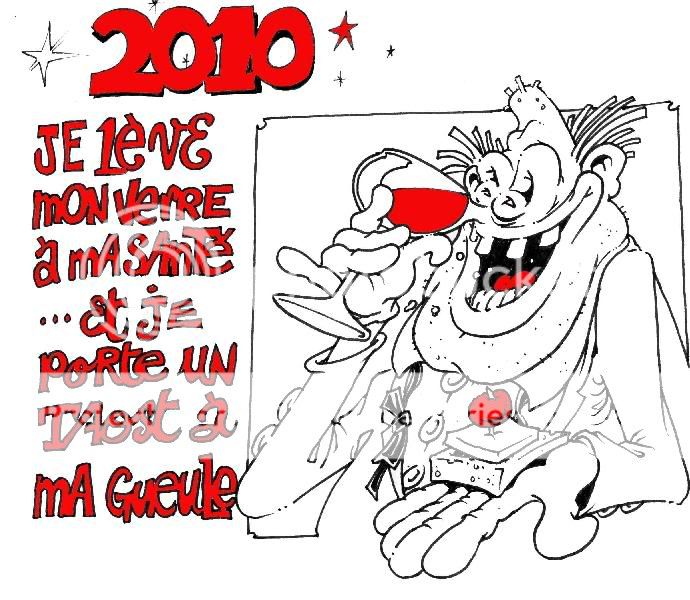 2010
JE lèVE
MON VeRRE
à MA SANTÉ
... et JE
PORTE UN
TAOST à
MA GUEULE